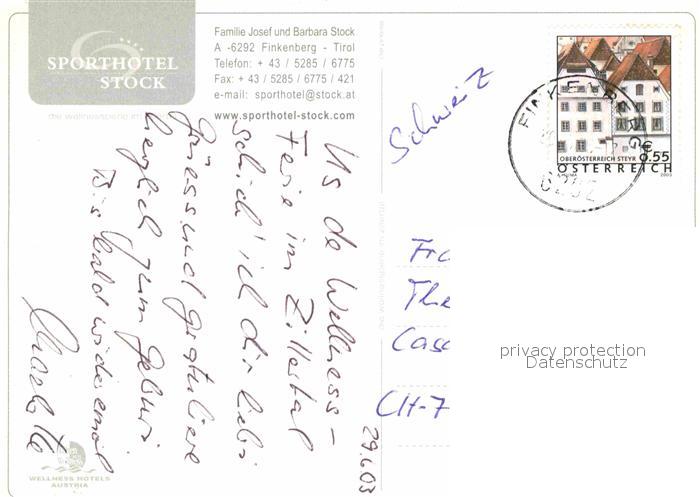 SPORTHOTEL
STOCK
Familie Josef und Barbara Stock
A -6292 Finkenberg - Tirol
Telefon: + 43 / 5285 / 6775
Fax: + 43 / 5285 / 6775 / 421
e-mail: sporthotel@stock.at
www.sporthotel-stock.com
Us de Wellness-
Ferie im Zillertal
schick' ich dir liebi
Grüess und gratuliere
herzlich zum Geburi
Bis bald wider emal
29.6.03
WELLNESS HOTELS
AUSTRIA
Schweiz
FINKENBERG
6292
OBERÖSTERREICH STEYR
€ 0.55
ÖSTERREICH
2003
Fra
The
Casa
CH-7
privacy protection
Datenschutz